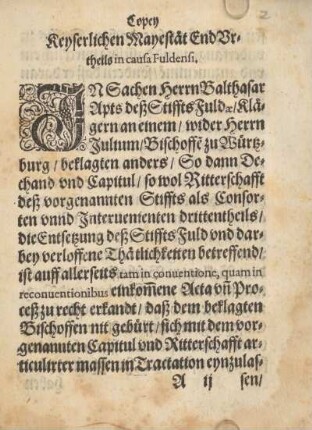 Copey
Keyserlichen Mayestät End Vr-
theils in causa Fuldensi.
IN Sachen Herrn Balthasar
Apts deß Stiffts Fuldæ / Klä-
gern an einem / wider Herrn
Julium / Bischoffē zu Würtz-
burg / beklagten anders / So dann De-
chand vnd Capitul / so wol Ritterschafft
deß vorgenannten Stiffts als Consor-
ten vnnd Interuenienten drittentheils /
die Entsetzung deß Stiffts Fuld vnd dar-
bey verloffene Thätlichkeiten betreffend /
ist auff allerseits tam in conuentione, quam in
reconuentionibus einkom̄ene Acta vn̄ Pro-
ceß zu recht erkandt / daß dem beklagten
Bischoffen nit gebürt / sich mit dem vor-
genannten Capitul vnd Ritterschafft ar-
ticulirter massen in Tractation eynzulas-
A ij sen /